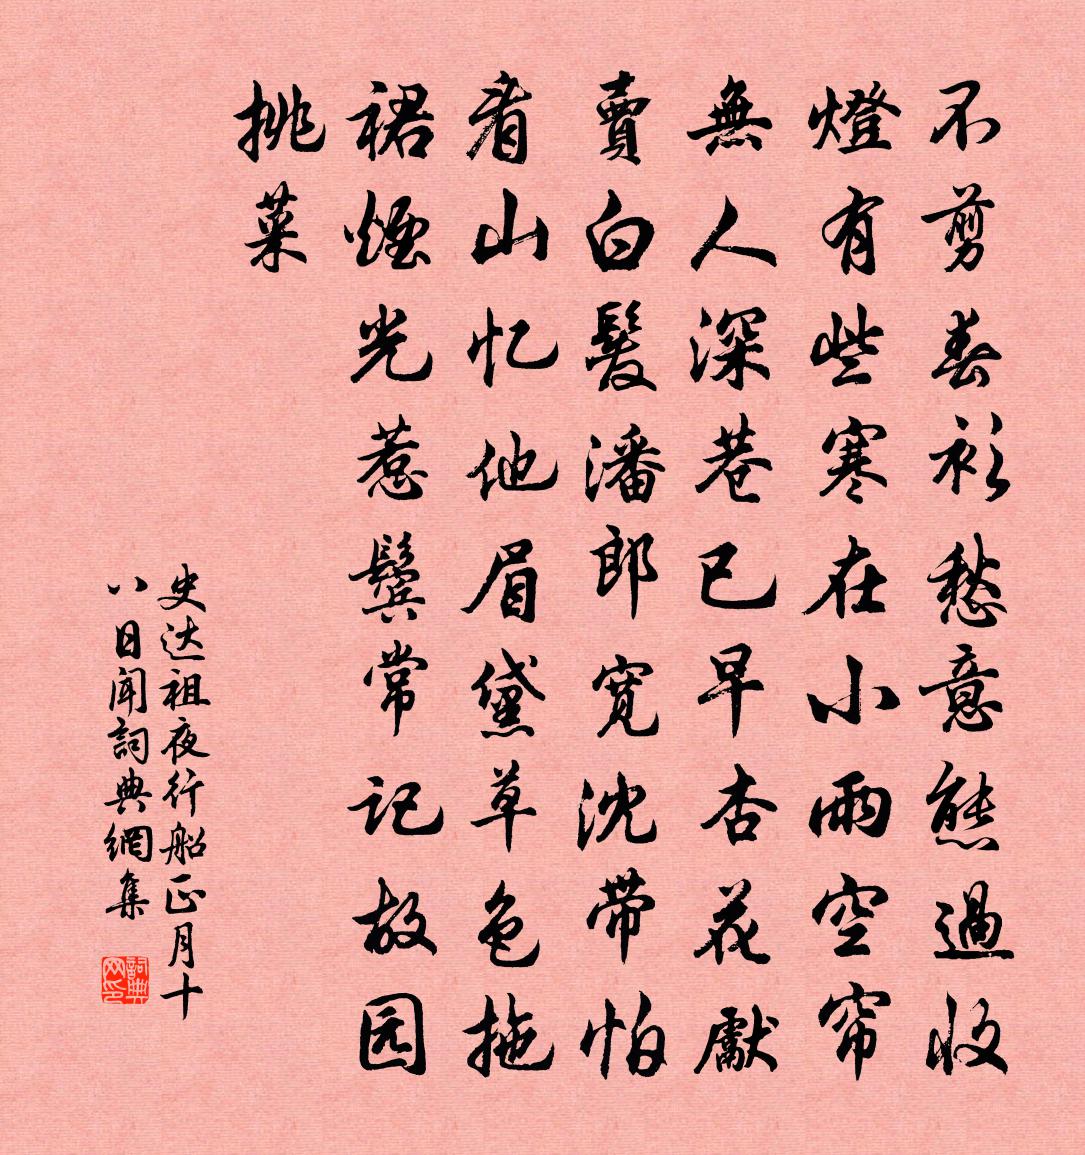 不剪春衫愁意態過收
燈有些寒在小雨空帘
無人深巷已早杏花獻
賣白髮潘郎寬沈帶怕
看山忆他眉黛草色拖
裙煙光惹鬢常记故园
挑菜
史达祖夜行船正月十
八日闻詞典網集
詞典网印